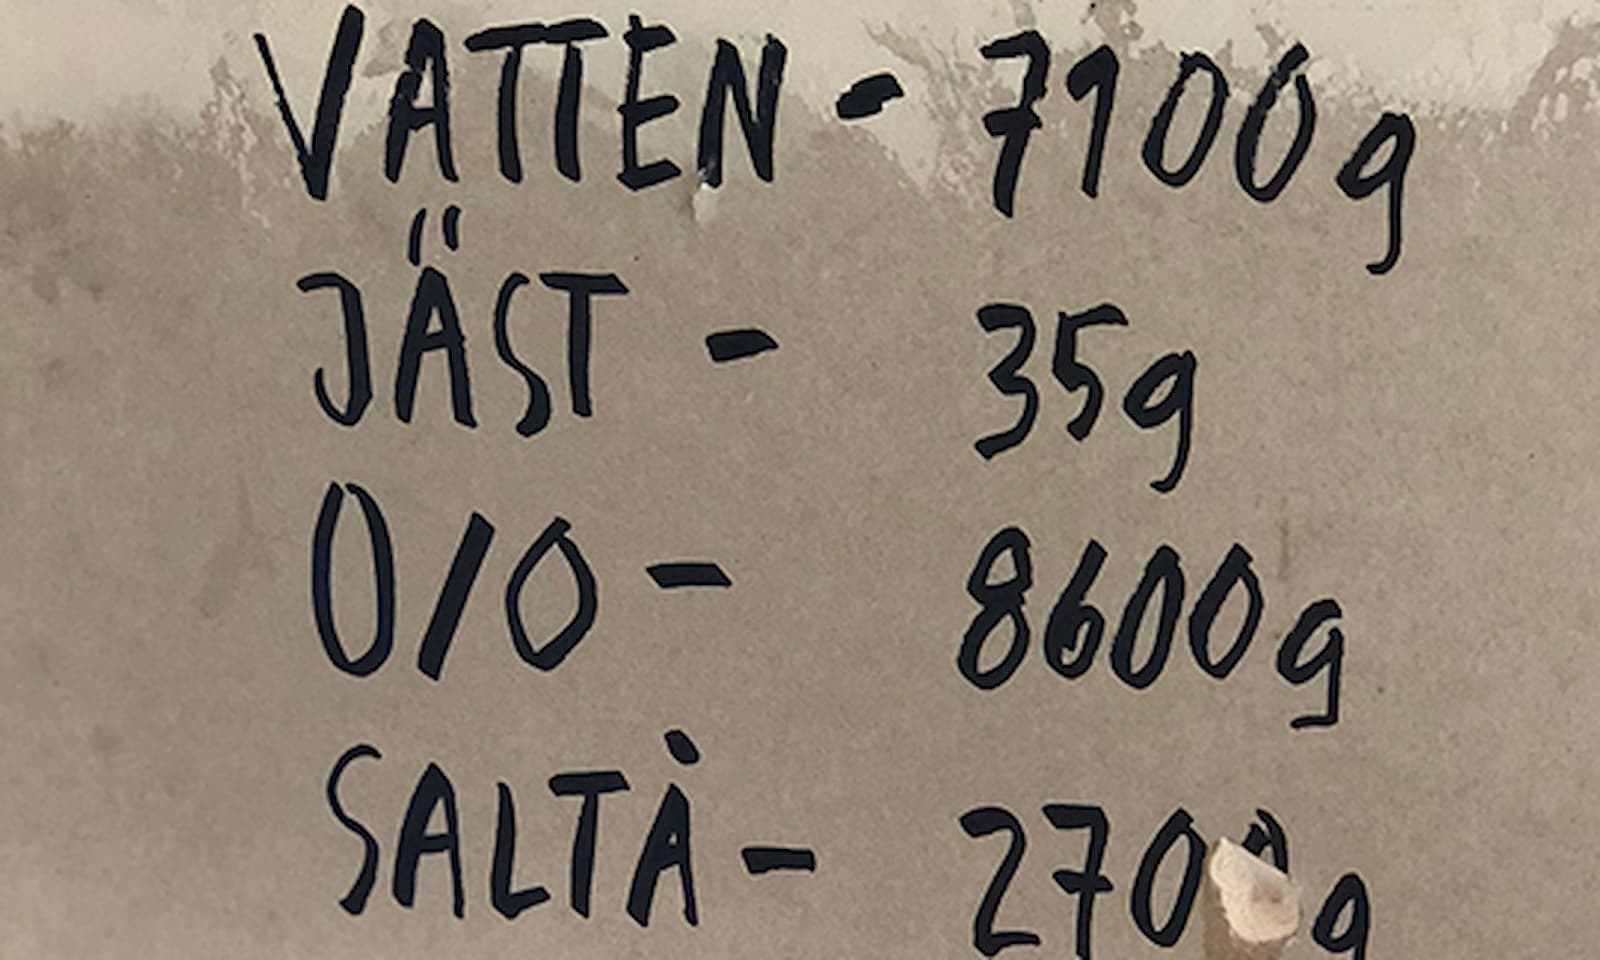 VATTEN - 7100 g
JÄST - 35g
O/O - 8600 g
SALTÅ - 2700 g